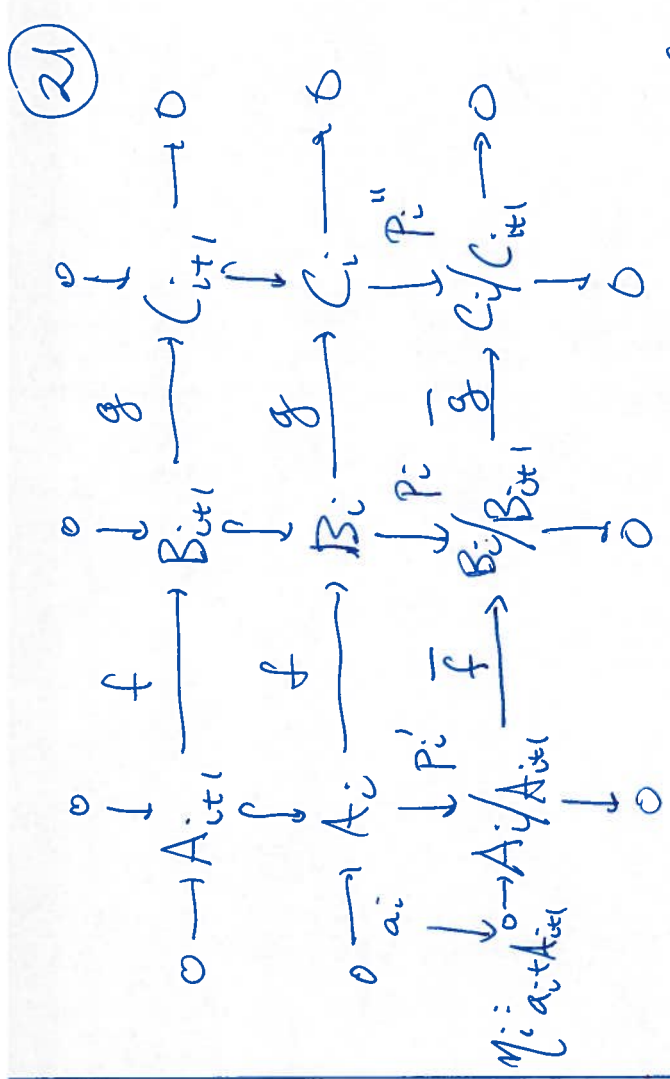 21
0 0 0
↓ ↓ ↓
0 → A_{i+1} —f→ B_{i+1} —g→ C_{i+1} → 0
↓ ↓ ↓
0 → A_i —f→ B_i —g→ C_i → 0
a_i ↓ ↓ P_i' ↓ P_i ↓ P_i''
0 → A_i/A_{i+1} —f̄→ B_i/B_{i+1} —ḡ→ C_i/C_{i+1} → 0
a_i + A_{i+1} ↓ ↓ ↓
0 0 0